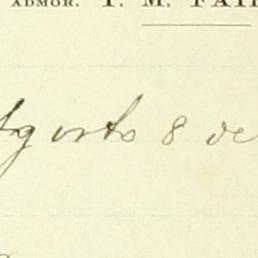 ADMOR. T. M. FAI
Agosto 8 de